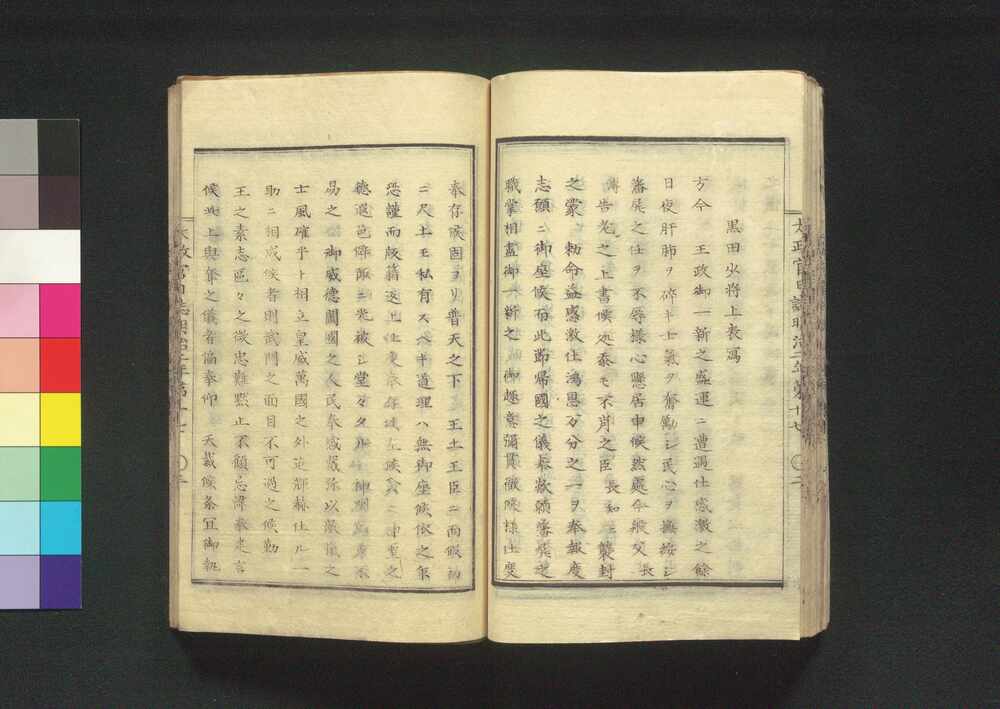 黒田少将上表寫
方今　王政御一新之盛運ニ遭遇仕感激之餘
日夜肝肺ヲ砕キ士氣ヲ奮勵シ民心ヲ撫綏シ
藩屏之任ヲ不辱様心懸居申候然處今般父長
溥告老之上書候処泰モ不肖之臣長知襲封
之蒙　勅命益感激仕鴻恩万分之一ヲ奉報度
志願ニ御座候右此節帰國之儀奉歎願藩屏之
職掌相盡御一新之　御趣意彌貫徹候様仕度
奉存候固ヨリ普天之下　王土王臣ニ而假初
ニ尺土モ私有スヘキ道理ハ無御座候依之
恐謹而版籍返上仕
徳遐邇ニ光被シ堂々タル
易之　御威徳闔國之人民奉感戴弥以
士風確乎ト相立皇威萬國之外迄輝赫仕ル一
助ニ相成候者則武門之面目不可過之候勤
王之素志區々之微忠難黙止不顧忌諱敢建言
候此上與奪之儀者偏奉仰　天裁候条宜御執
太政官日誌明治二年第十七